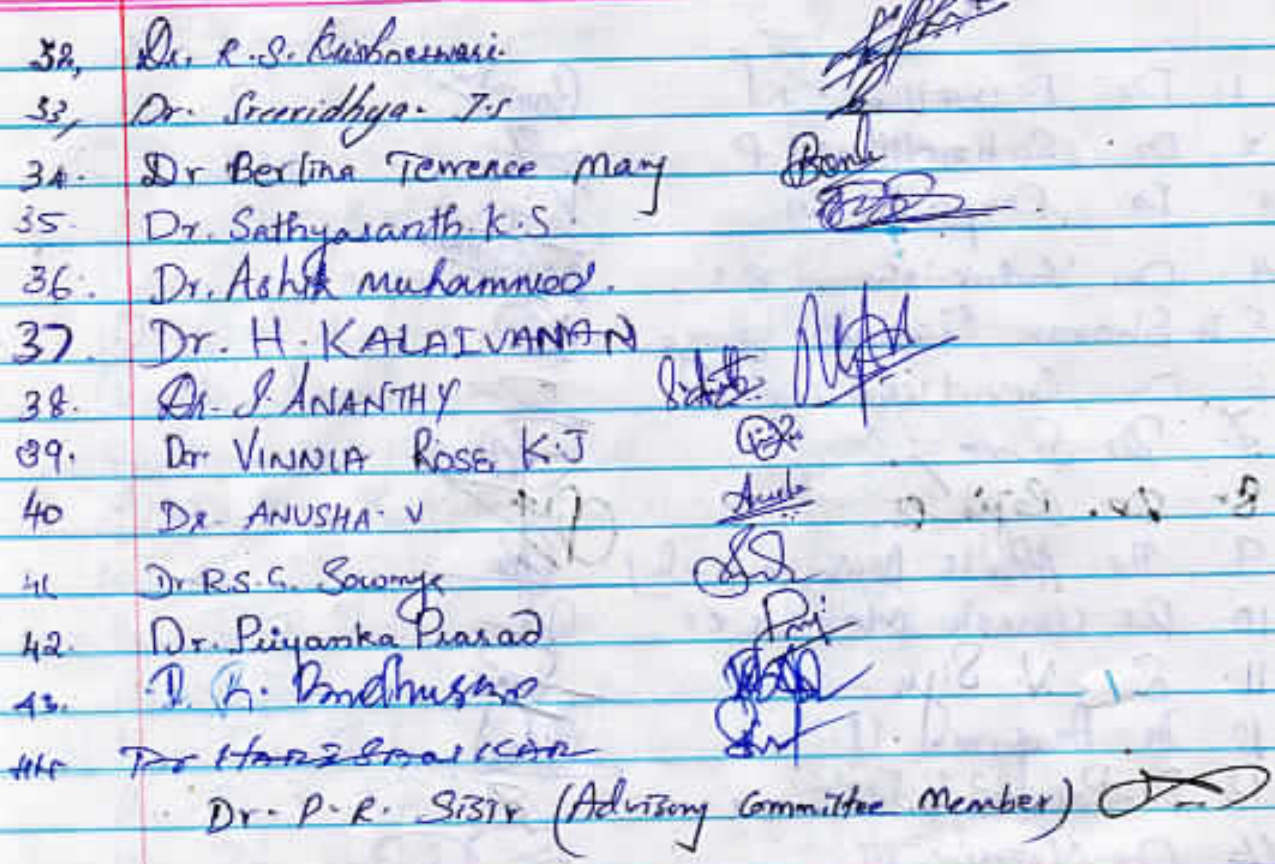 32, Dr. R.S. Krishneswari.
33, Dr. Sreeridhya. J.S
34. Dr Berlina Terrence Mary
35. Dr. Sathyasanth. K.S.
36. Dr. Ashik muhammed.
37. Dr. H. KALAIVANAN
38. Dr. J. ANANTHY
39. Dr. VINNIA ROSE, K.J
40 Dr. ANUSHA. V
41 Dr. R.S.G. Sowmya
42. Dr. Priyanka Prasad
43. D. R.
44. Dr
Dr. P.R. SISIR (Advisory Committee Member)